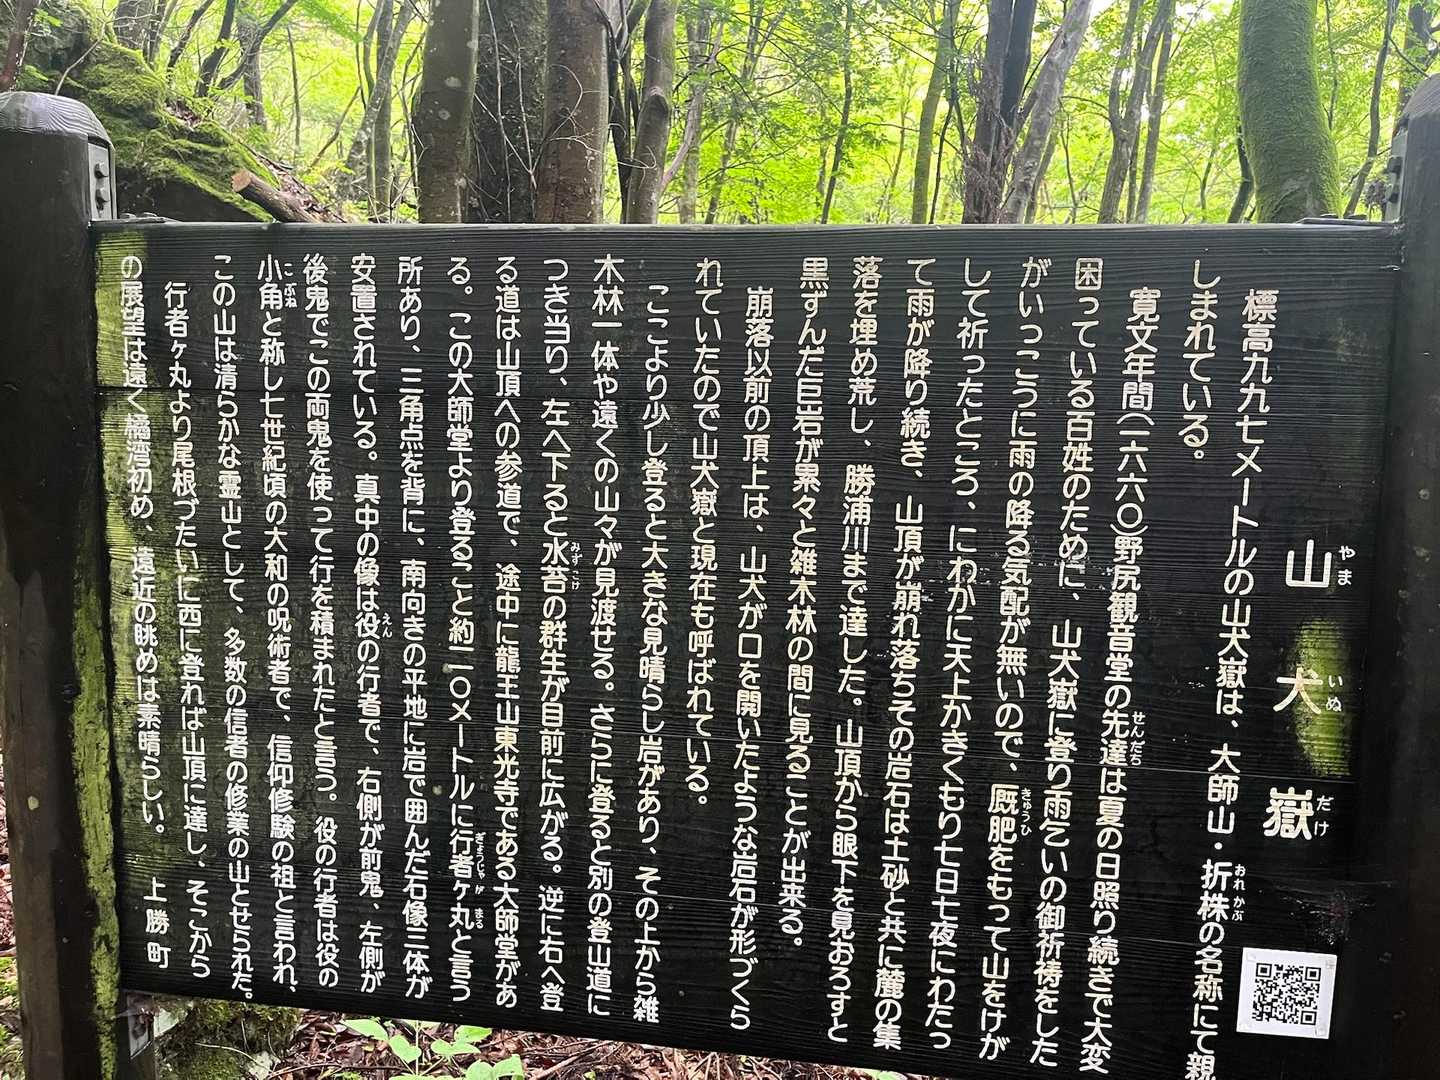 山犬嶽
やまいぬだけ
標高九九七メートルの山犬嶽は、大師山・折株の名称にて親
おれかぶ
しまれている。
寛文年間(一六六〇)野尻観音堂の先達は夏の日照り続きで大変
せんだち
困っている百姓のために、山犬嶽に登り雨乞いの御祈祷をした
がいっこうに雨の降る気配が無いので、厩肥をもって山をけが
きゅうひ
して祈ったところ、にわかに天上かきくもり七日七夜にわたっ
て雨が降り続き、山頂が崩れ落ちその岩石は土砂と共に麓の集
落を埋め荒し、勝浦川まで達した。山頂から眼下を見おろすと
黒ずんだ巨岩が累々と雑木林の間に見ることが出来る。
崩落以前の頂上は、山犬が口を開いたような岩石が形づくら
れていたので山犬嶽と現在も呼ばれている。
ここより少し登ると大きな見晴らし岩があり、その上から雑
木林一体や遠くの山々が見渡せる。さらに登ると別の登山道に
つき当り、左へ下ると水苔の群生が目前に広がる。逆に右へ登
みずごけ
る道は山頂への参道で、途中に龍王山東光寺である大師堂があ
る。この大師堂より登ること約二〇メートルに行者ヶ丸と言う
ぎょうじゃがまる
所あり、三角点を背に、南向きの平地に岩で囲んだ石像三体が
安置されている。真中の像は役の行者で、右側が前鬼、左側が
えん
後鬼でこの両鬼を使って行を積まれたと言う。役の行者は役の
小角と称し七世紀頃の大和の呪術者で、信仰修験の祖と言われ、
こぶね
この山は清らかな霊山として、多数の信者の修業の山とせられた。
行者ヶ丸より尾根づたいに西に登れば山頂に達し、そこから
の展望は遠く橘湾初め、遠近の眺めは素晴らしい。
上勝町